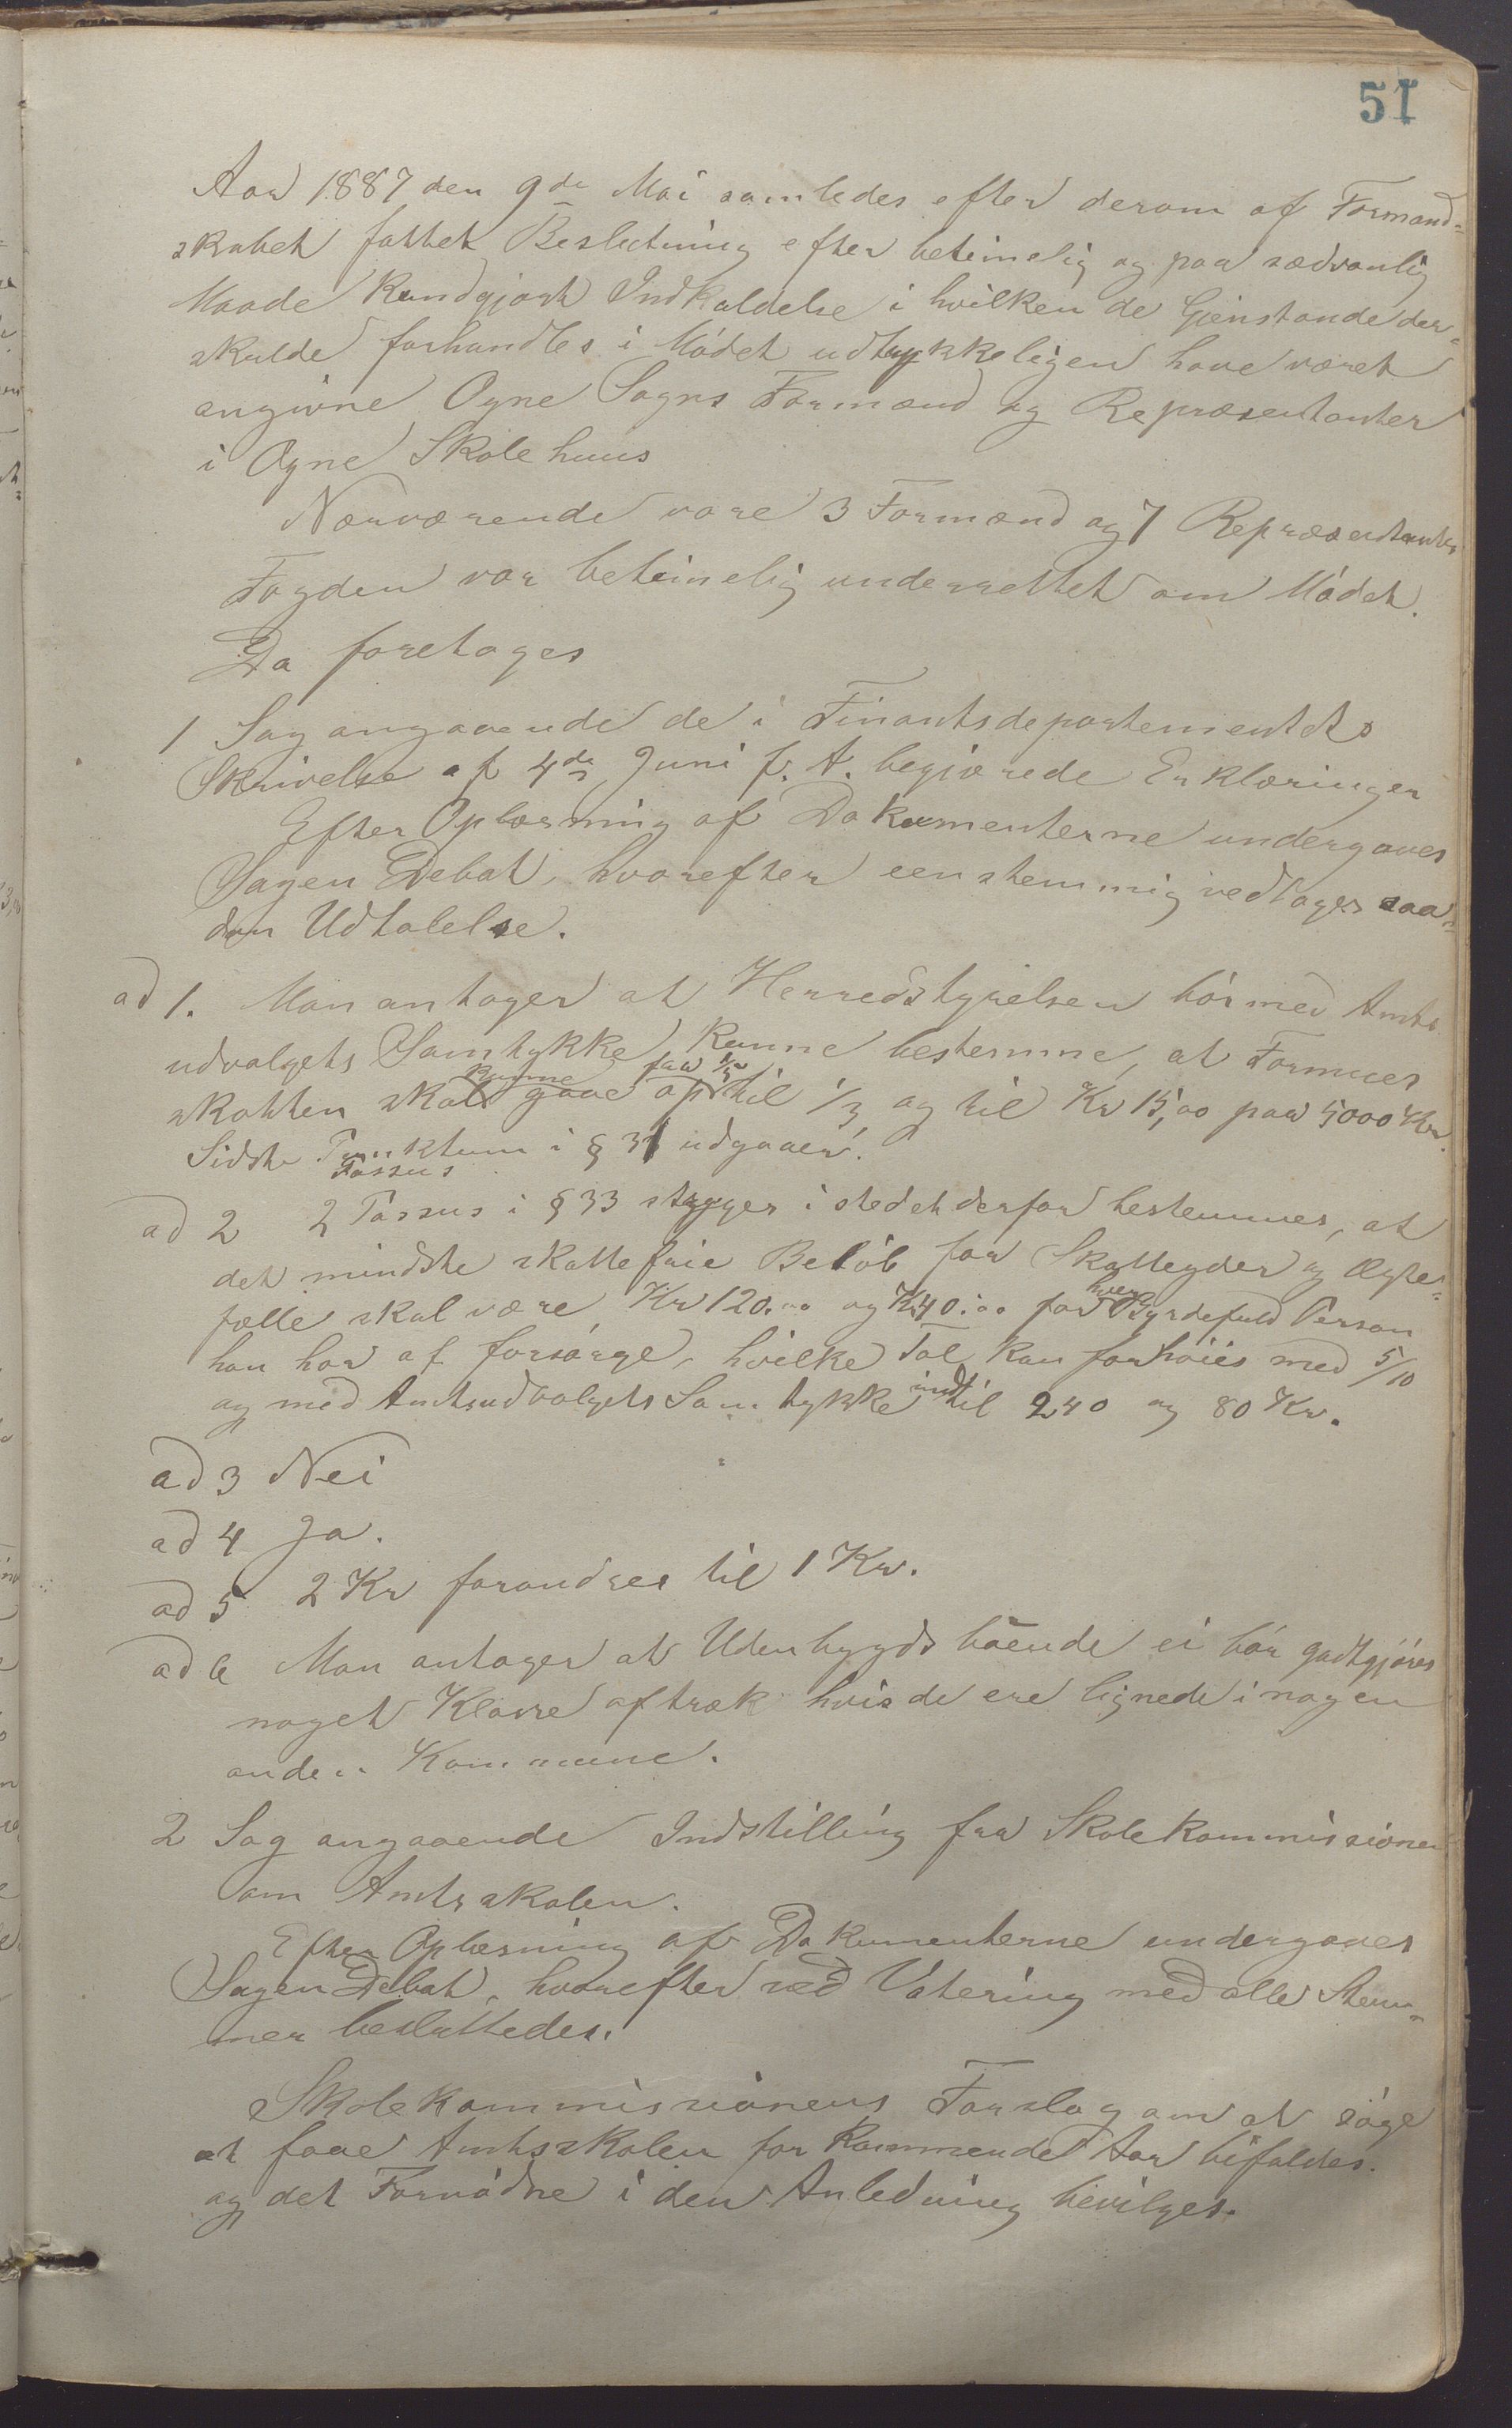 51
Aar 1887 den 9de Mai samledes efter derom af Formand-
skabet fattet Beslutning efter betimelig og paa sædvanlig
Maade Kundgjort Indkaldelse i hvilken de Gjenstande der
skulde forhandles i Mødet udtrykkeligen have været
angivne Ogne Sogns Formænd og Repræsentanter
i Ogne Skolehuus
Nærværende vare 3 Formænd og 7 Repræsentanter
Fogden var betimelig underrettet om Mødet.
Da foretoges
1 Sag angaaende de i Finantsdepartementets
Skrivelse af 4de Juni f. A. begjærede Erklæringer
Efter Oplæsning af Dokumenterne undergaves
Sagen Debat, hvorefter eenstemmig vedtoges saa-
dan Udtalelse.
ad 1. Man antager at Herredstyrelsen bør med Amts
udvalgets Samtykke Kunne bestemme, at Formues
kunne fra 1/5
skatten skal gaae op til 1/3 og til Kr 15,00 paa 5000 Kr.
Sidste Punktum i § 31 udgaaer.
Passus
ad 2 2 Passus i § 33 stryges i stedet derfor bestemmes, at
det mindste skattefrie Beløb for Skatteyder og Ægte-
fælle skal være Kr 120.00 og Kr 40.00 for hver Byrdefuld Person
han har at forsørge, hvilke Tal kan forhøies med 5/10
og med Amtsudvalgets Samtykke indtil 240 og 80 Kr.
ad 3 Nei
ad 4 Ja.
ad 5 2 Kr forandres til 1 Kr.
ad 6 Man antager at Udenbygds boende ei bør godtgjøres
noget Klasse aftræk hvis de ere lignede i nogen
anden Kommune.
2 Sag angaaende Indstilling fra Skolekommissionen
om Amtsskolen.
Efter Oplæsning af Dokumenterne undergaves
Sagen Debat, hvorefter ved Votering med alle Stem-
mer besluttedes.
Skolekommissionens Forslag om at søge
at faae Amtsskolen for Kommende Aar bifaldes.
og det Fornødne i den Anledning bevilges.